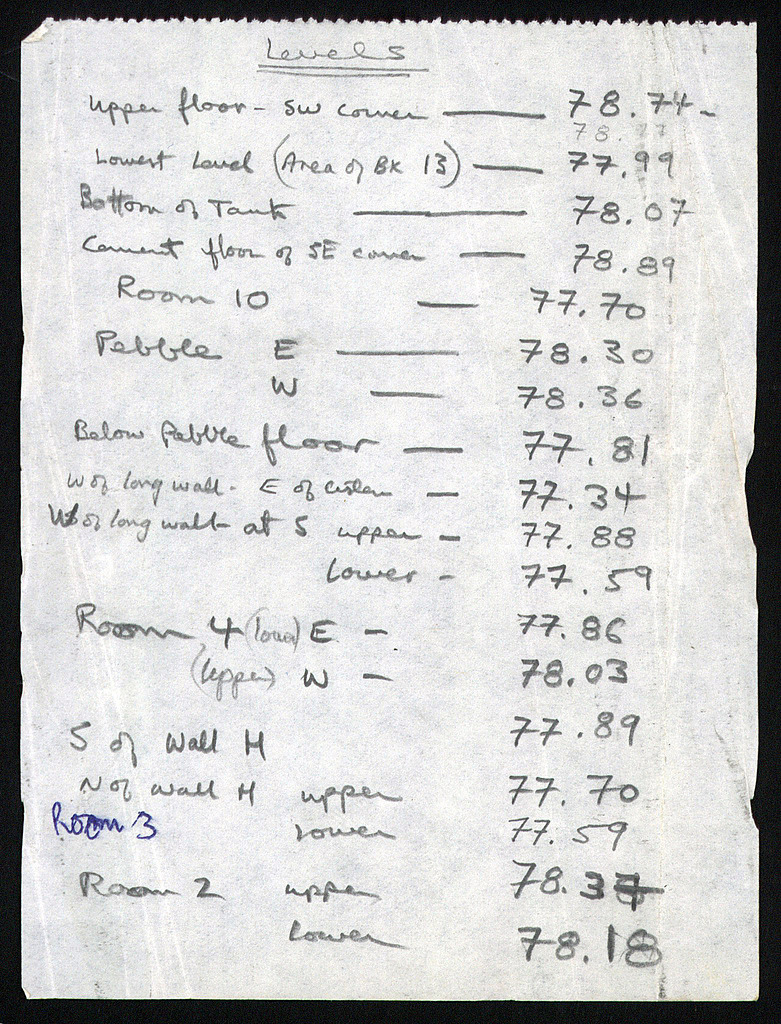 Levels
Upper floor - SW corner — 78.74 -
78.77
Lowest Level (Area of BK 13) — 77.99
Bottom of Tank — 78.07
Cement floor of SE corner — 78.89
Room 10 — 77.70
Pebble E — 78.30
W — 78.36
Below Pebble floor — 77.81
W of long wall - E of cistern — 77.34
W of long wall - at S upper — 77.88
Lower - 77.59
Room 4 (lower) E - 77.86
(Upper) W - 78.03
S of Wall H 77.89
N of wall H upper 77.70
Room 3 Lower 77.59
Room 2 upper 78.37
lower 78.18